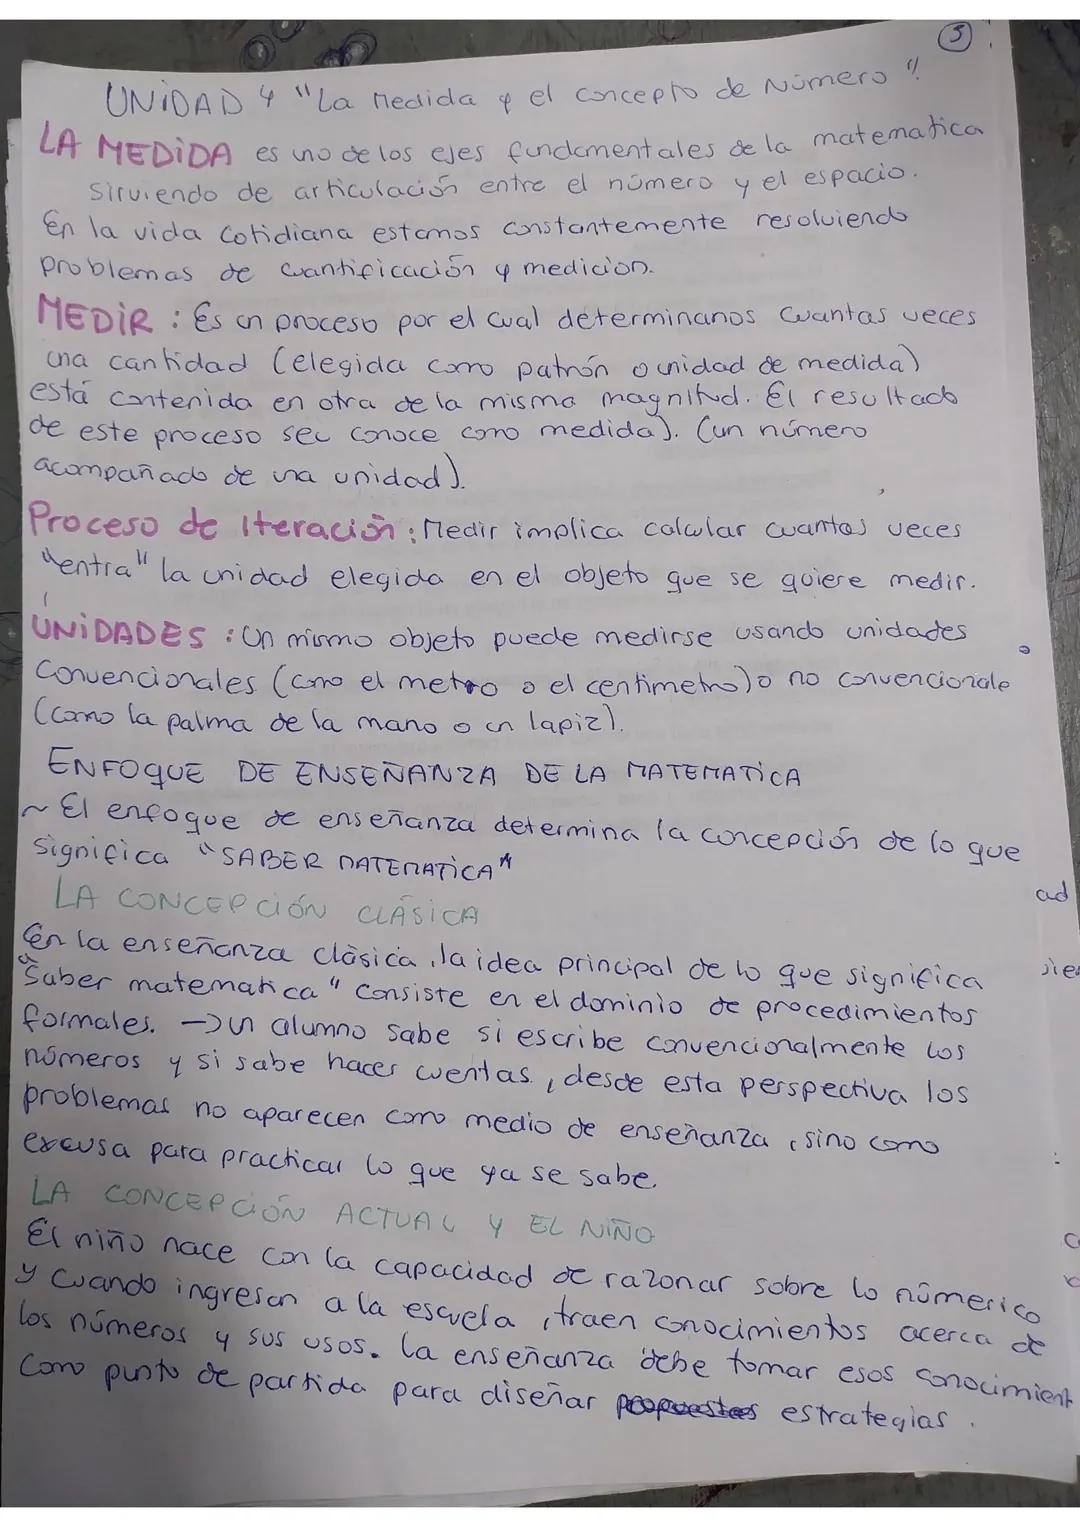 3
UNiDAD 4 "La Medida y el concepto de Número".
LA MEDiDA es uno de los ejes fundamentales de la matematica
sirviendo de articulación entre el número y el espacio.
En la vida cotidiana estamos constantemente resolviendo
problemas de cuantificación y medicion.
MEDiR : Es un proceso por el cual determinanos cuantas veces
una cantidad (elegida como patrón o unidad de medida)
está contenida en otra de la misma magnitud. El resultado
de este proceso sec conoce como medida). (un número
acompañado de una unidad).
Proceso de Iteración : Medir implica calcular cuantas veces
"entra" la unidad elegida en el objeto que se quiere medir.
UNiDADES : Un mismo objeto puede medirse usando unidades
Convencionales (como el metro o el centimetro) o no convencionale
(como la palma de la mano o un lapiz).
ENFOQUE DE ENSEÑANZA DE LA MATEMATICA
~ El enfoque de enseñanza determina la concepción de lo que
significa "SABER MATEMATiCA"
LA CONCEPCIÓN CLÁSICA
En la enseñanza clásica, la idea principal de lo que significa
"Saber matematica" consiste en el dominio de procedimientos
formales. → un alumno sabe si escribe convencionalmente los
números y si sabe hacer cuentas, desde esta perspectiva los
problemas no aparecen como medio de enseñanza, sino como
excusa para practicar lo que ya se sabe.
LA CONCEPCIÓN ACTUAL Y EL NIÑO
El niño nace con la capacidad de razonar sobre lo númerico
y cuando ingresan a la escuela, traen conocimientos acerca de
los números y sus usos. La enseñanza debe tomar esos conocimient
como punto de partida para diseñar propuestas estrategias.